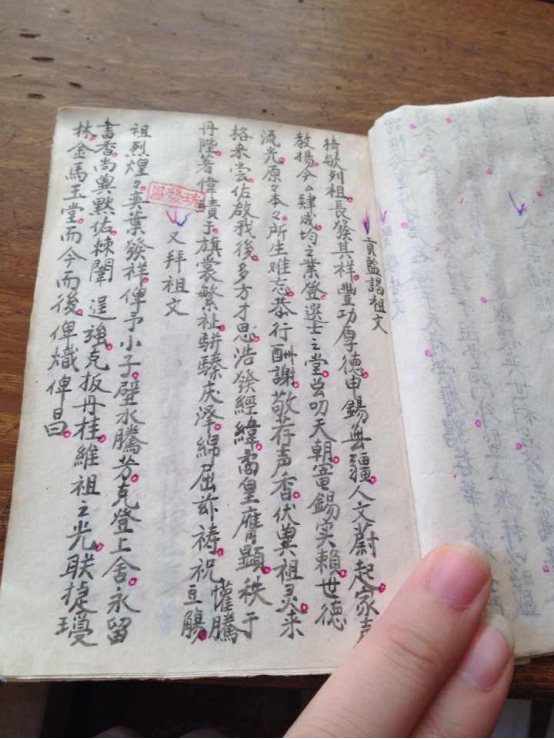 貢監謁祖文
猗歟列祖長發其祥豐功厚德申錫無疆人文蔚起家声
教揚今々肆成均之業登選士之堂叨天朝寵錫实賴世德
流光原々本々所生难忘恭行酬謝敬荐声香伏冀祖灵来
格来尝佑啟我後多方才思浩發經緯矞皇膺顯秩于
丹陛著偉責于旗裳繁祉駢臻庆澤綿屈兹祷祝懽騰豆觴
又拜祖文
祖烈煌々英葉發祥俾予小子璧水騰芳克登上舍永留
書香尚冀默佑棘闈逞強克扳丹桂維祖之光联捷瓊
林金馬玉堂而今而後俾熾俾昌